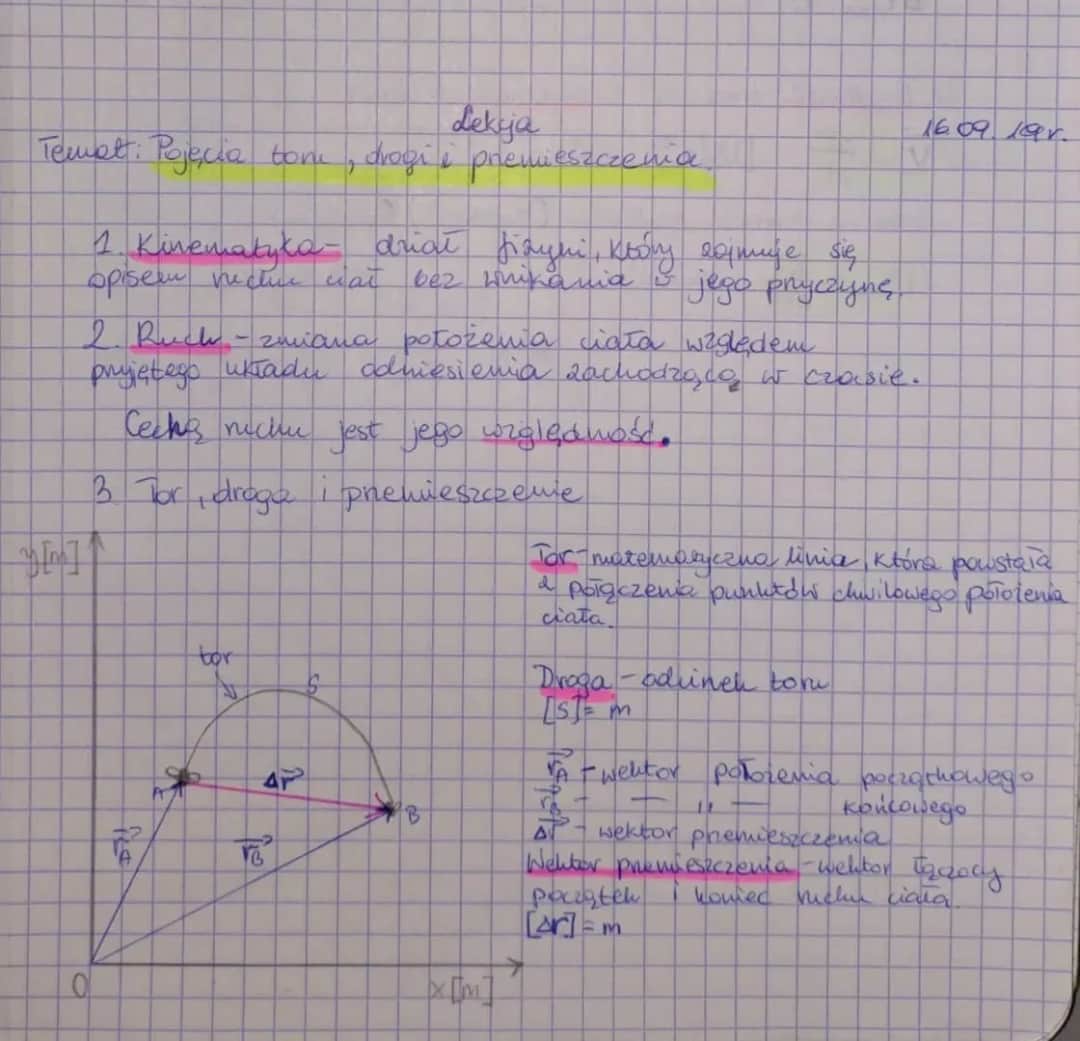 Lekcja
16.09.19r.
Temat: Pojęcia toru, drogi i przemieszczenia.
1. Kinematyka - dział fizyki, który zajmuje się
opisem ruchu ciał bez wnikania w jego przyczynę.
2. Ruch - zmiana położenia ciała względem
przyjętego układu odniesienia zachodzącą w czasie.
Cechą ruchu jest jego względność.
3 Tor, droga i przemieszczenie
y[m]
tor
S
A
Δr⃗
B
r⃗A
r⃗B
0
x[m]
Tor - matematyczna linia, która powstała
z połączenia punktów chwilowego położenia
ciała.
Droga - odcinek toru
[S] = m
r⃗A - wektor położenia początkowego
r⃗B - — „ — końcowego
Δr⃗ - wektor przemieszczenia
Wektor przemieszczenia - wektor łączący
początek i koniec ruchu ciała.
[Δr] = m